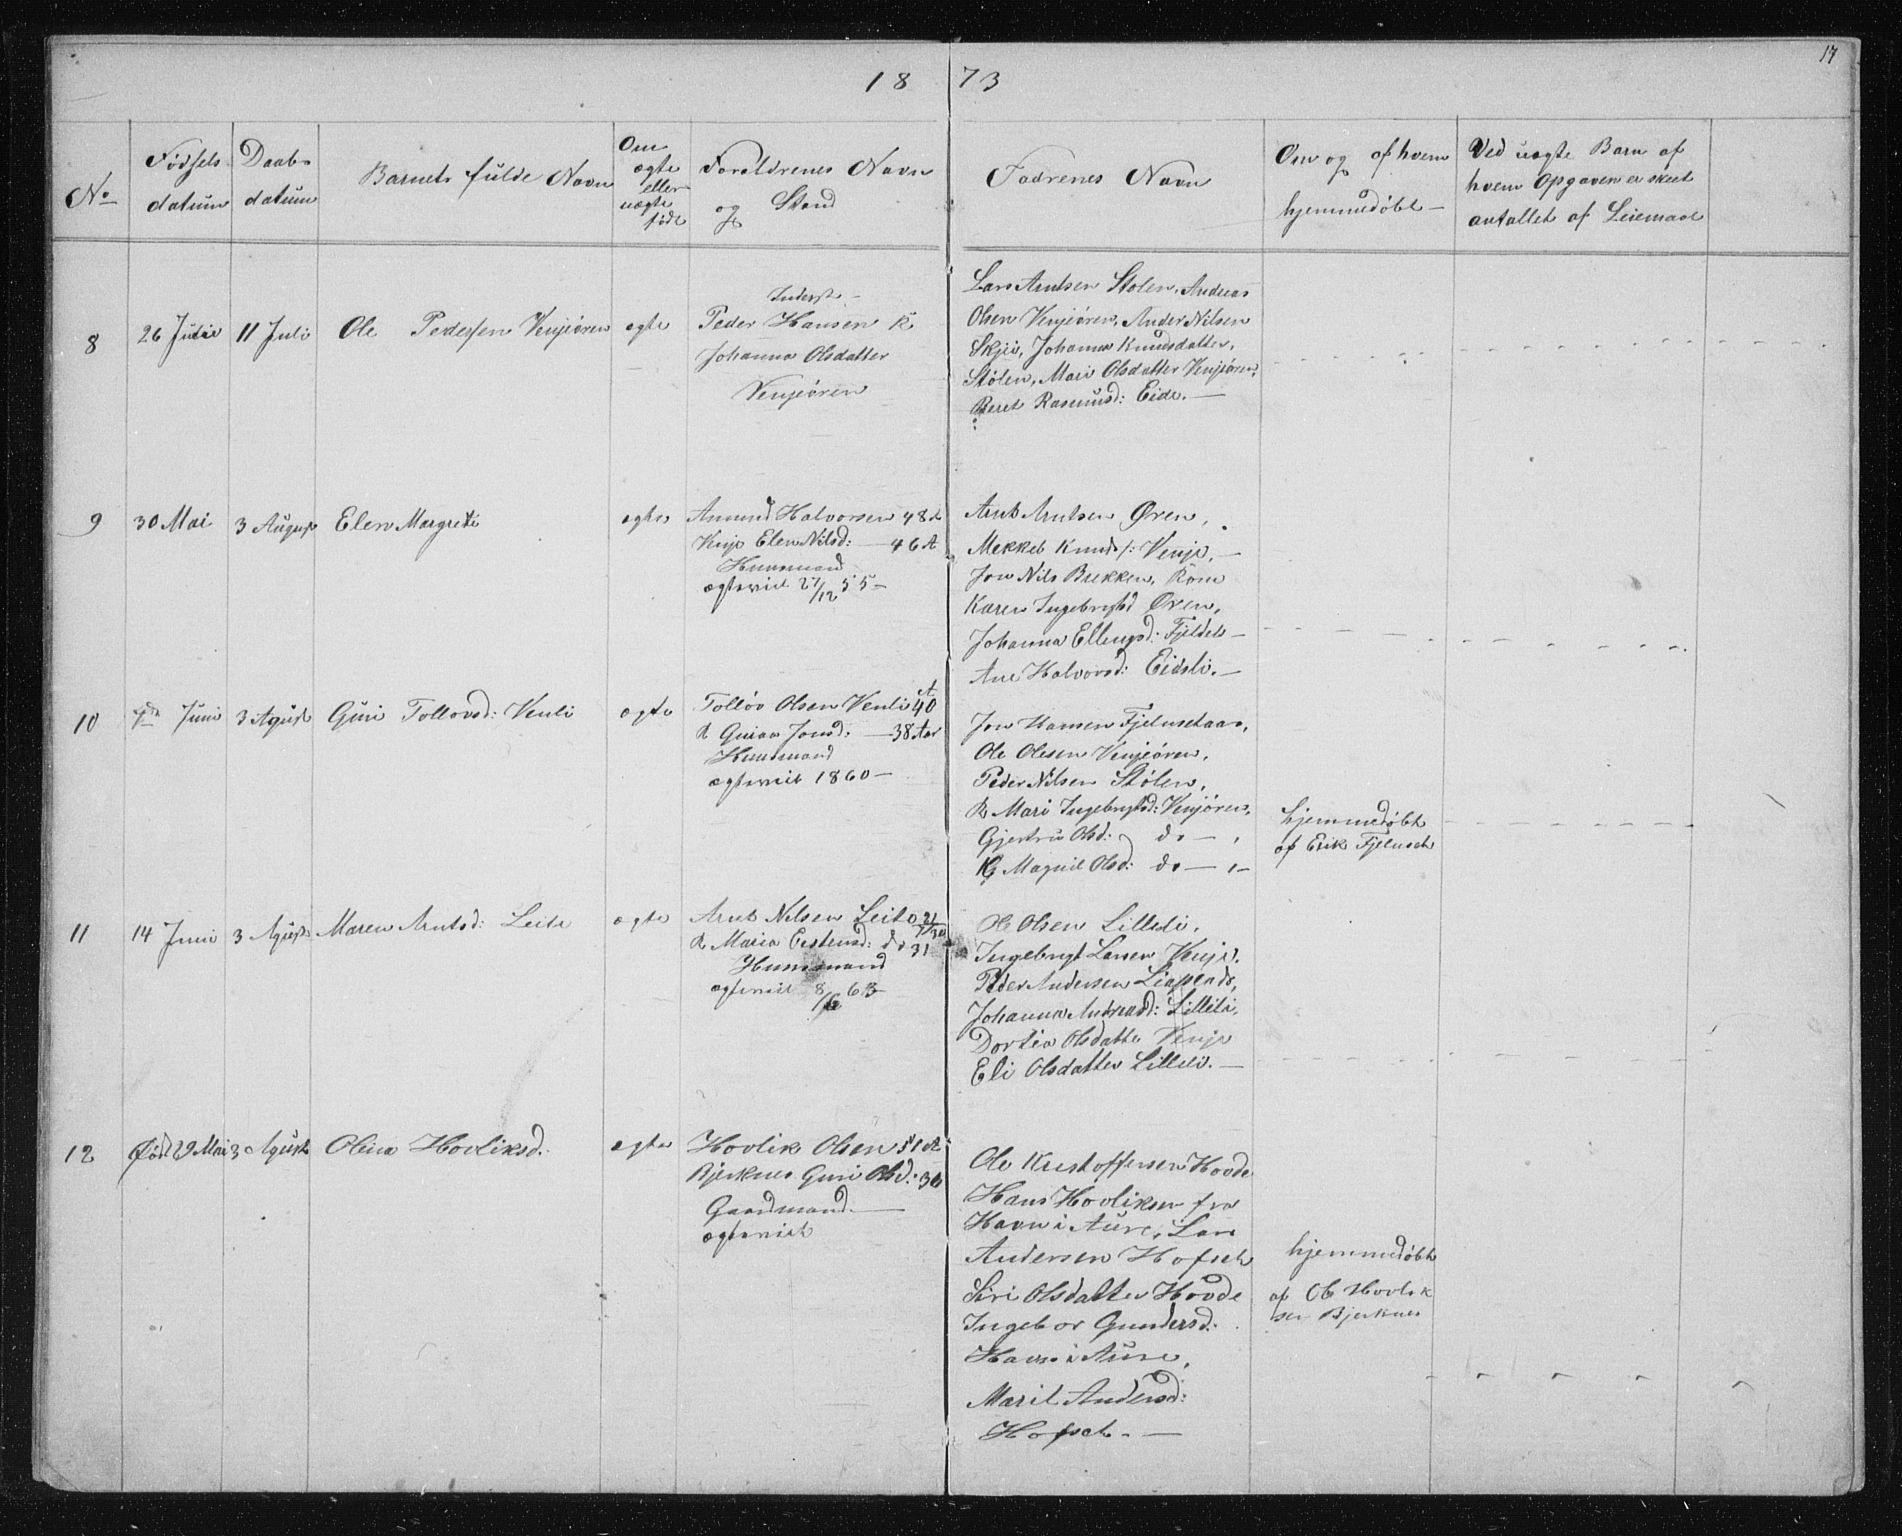 17
18 73
No
Fødsels
datum
Daabs
datum
Barnets fulde Navn
Om
ægte
eller
uægte
født
Forældrenes Navn
og Stand
Fadrenes Navn
Om og af hvem
hjemmedøbt —
Ved uægte Barn af
hvem Opgaven er skeet
antallet af Leiemaal
8
26 Juni
11 Juli
Ole Pedersen Venjeøren
ægte
Inderst —
Peder Hansen K
Johanna Olsdatter
Venjeøren
Lars Arntsen Stølen, Andreas
Olsen Venjeøren, Ander Nilsen
Skjei, Johanna Knudsdatter,
Stølen, Mari Olsdatter Venjeøren,
Beret Rasmusd: Eide. —
9
30 Mai
3 August
Elen Margrete
ægte
Amund Halvorsen 48 A
Venje Elen Nilsd: — 46 A
Huusmand
ægteviet 27/12 55 —
Arnt Arntsen Øren,
Mekkel Knuds: Venje, —
Jon Nils Brekken, Rom
Karen Ingebrigtsd Øren,
Johanna Ellengsd: Fjeldet —
Ane Halvorsd: Eidsli. —
10
Juni
3 Agust
Guri Tollovsd: Venli
ægte
Tolløv Olsen Venli 40 A
K Guroa Jonsd: — 38 Aar
Huusmand
ægteviet 1860 —
Jon Hansen Fjelnsetaas,
Ole Olesen Venjeøren,
Peder Nilsen Stølen,
K Mari Ingebrigtsd: Venjøren,
Gjertru Olsd: do — ,
Magnil Olsd: do — , —
hjemmedøbt
af Erik Fjelnset
11
14 Juni
3 Agust
Maren Arntsd: Leite
ægte
Arnt Nilsen Leite
K Maria Eestensd: do 31
Huusmand
ægteviet 8/6 63
Ole Olsen Lilleli,
Ingebrigt Larsen Venje,
Peder Andersen Liabende,
Johanna Andreasd: Lilleli,
Dortea Olsdatter Venje
Eli Olsdatter Lilleli. —
12
Fød 29 Mai
3 Agust
Olina Hovliksd.
ægte
Hovlik Olsen 51 A
Bjerknes Guri Olsd: 36
Gaardmand —
ægteviet
Ole Kristoffersen Hovde
Hans Hovliksen fra
Havn i Aure, Lars
Andersen Hofset
Siri Olsdatter Hovde
Ingebor Gundersd:
Havn i Aure,
Marit Andersd:
Hofset. —
hjemmedøbt
af Ole Hovlik
sen Bjerknes